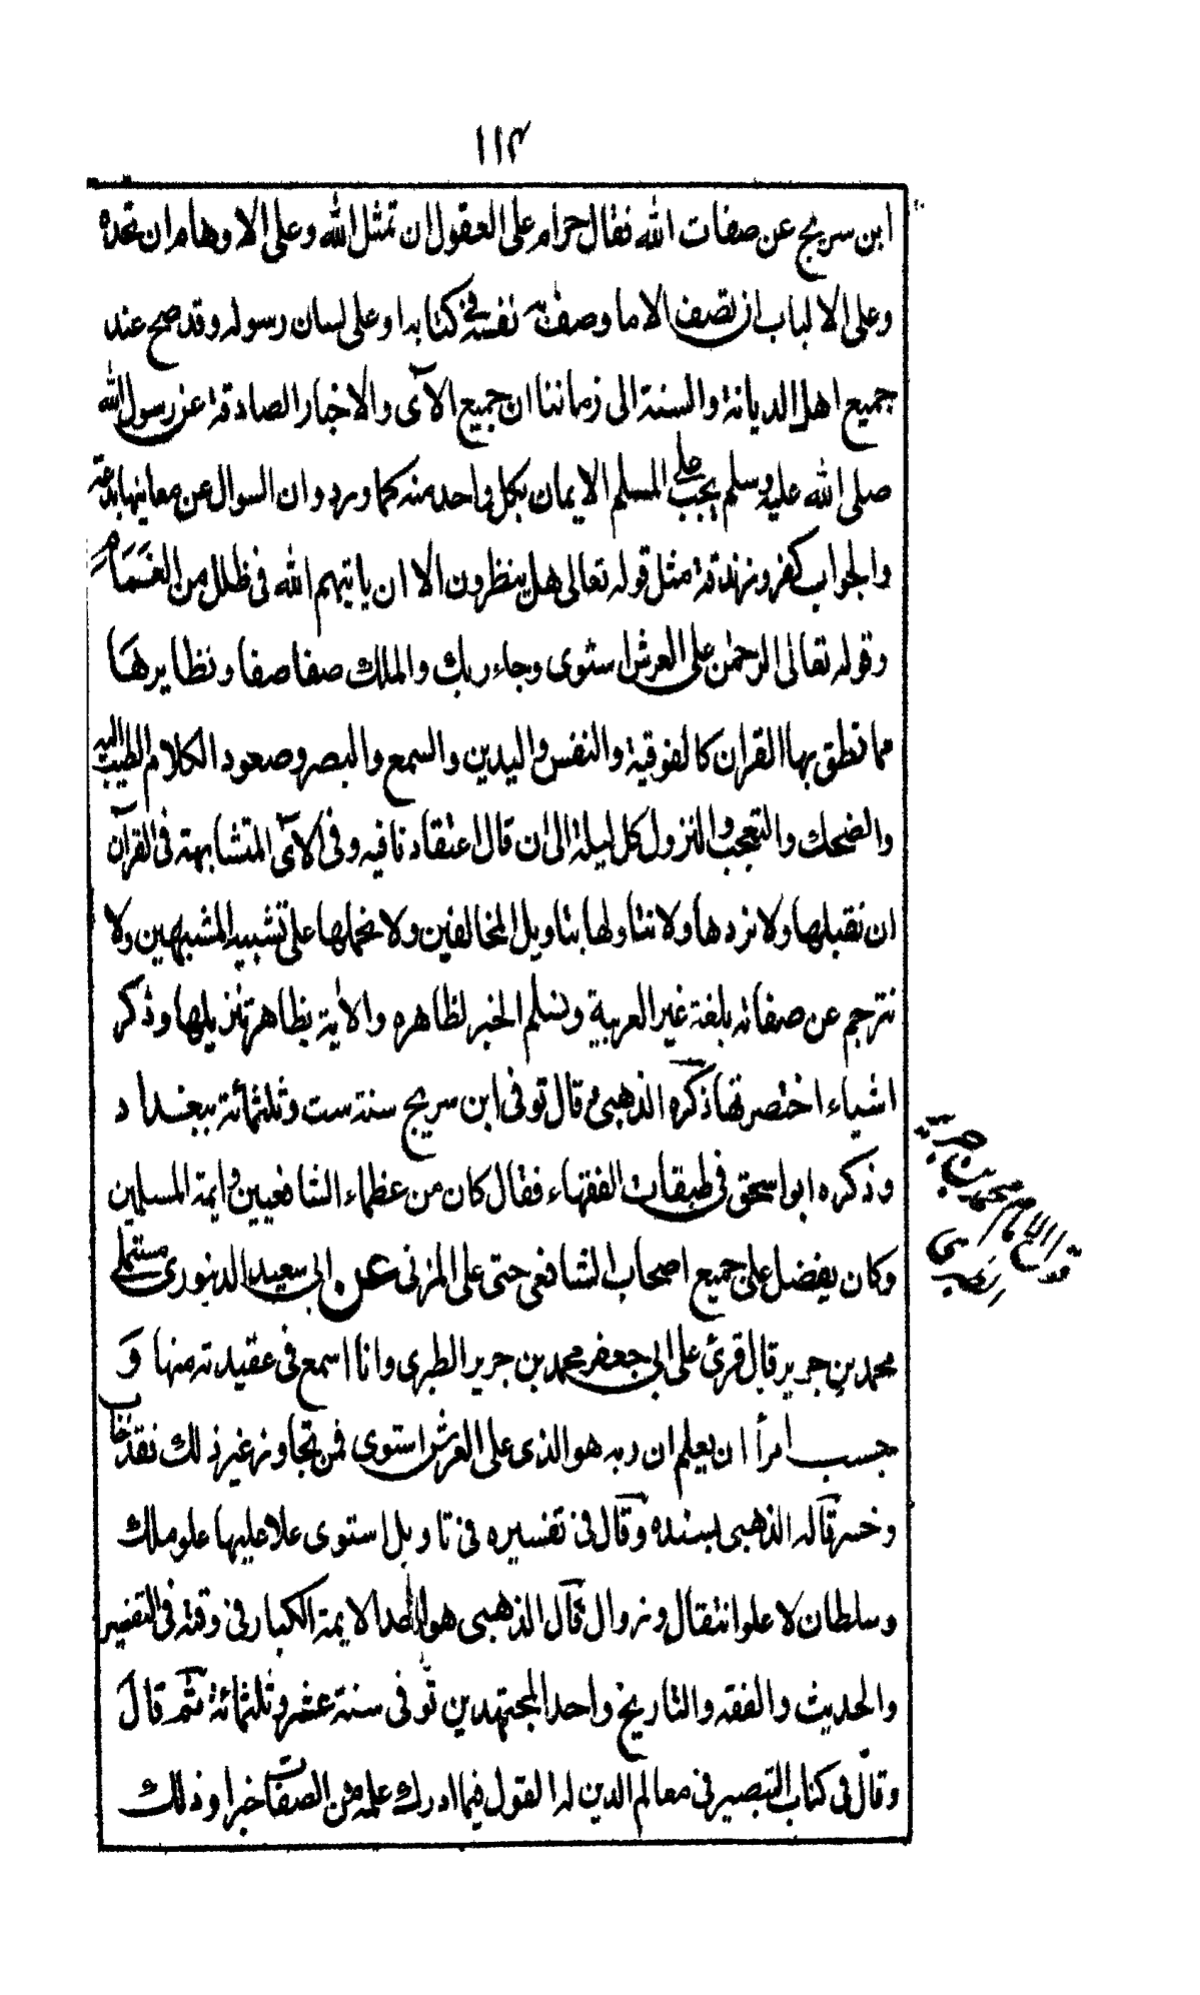 ١١٤
ابن سريج عن صفات الله فقال حرام على العقول ان تمثل الله وعلى الاوهام ان تحده
وعلى الالباب ان تصف الا ما وصف به نفسه فى كتابه او على لسان رسوله وقد صح عند
جميع اهل الديانة والسنة الى زماننا ان جميع الآى والاخبار الصادقة عن رسول الله
صلى الله عليه وسلم يجب على المسلم الايمان بكل واحد منه كما ورد وان السوال عن معاينها بدعة
والجواب كفر وزندقة مثل قوله تعالى هل ينظرون الا ان ياتيهم الله فى ظلل من الغمام
وقوله تعالى الرحمن على العرش استوى وجاء ربك والملك صفا صفا ونظايرها
مما نطق بها القران كالفوقية والنفس واليدين والسمع والبصر وصعود الكلام الطيب اليه
والضحك والتعجب والنزول كل ليلة الى ان قال اعتقادنا فيه وفى الآى المتشابهة فى القرآن
ان نقبلها ولا نردها ولا نتاولها بتاويل المخالفين ولا نحملها على تشبيه المشبهين ولا
نترجم عن صفاته بلغة غير العربية ونسلم الخبر لظاهره والاية بظاهر تنزيلها وذكر
اشياء اختصرتها ذكره الذهبى م قال توفى ابن سريج سنة ست وثلثمائة ببغداد
وذكره ابو اسحق فى طبقات الفقهاء فقال كان من عظماء الشافعيين وايمة المسلمين
وكان يفضل على جميع اصحاب الشافعى حتى على المزنى عن ابى سعيد الدينورى مستملى
محمد بن جرير قال قرئ على ابى جعفر محمد بن جرير الطبرى وانا اسمع فى عقيدته منها و
حسب امرأ ان يعلم ان ربه هو الذى على العرش استوى فمن تجاوز غير ذلك فقد خاب
وخسر قاله الذهبى بسنده وقال فى تفسيره فى تاويل استوى علا عليها علو ملك
وسلطان لا علو انتقال وزوال قال الذهبى هو احد الايمة الكبار فى وقته فى التفسير
والحديث والفقه والتاريخ واحد المجتهدين توفى سنة عشر وثلثمائة ثم قال
وقال فى كتاب التبصير فى معالم الدين له القول فيما ادرك علمه من الصفات خبرا وذلك
قول الامام محمد بن جرير